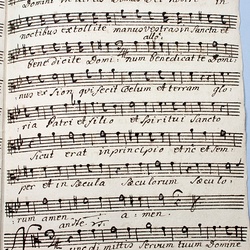 Domini in
noctibus extollite manus vestras in Sancta et
allo:
bene dicite Domi: num benedicat te Domi:
nus ex Sion, qui fecit Cœlum et terram glo:
ria Patri et filio et Spiritui Sancto
Sicut erat in principio et nc et Sem:
per et in Sæcula Sæculorum Sæculo:
rum amen. a: men.
unc dimittis Servum tuum Domine